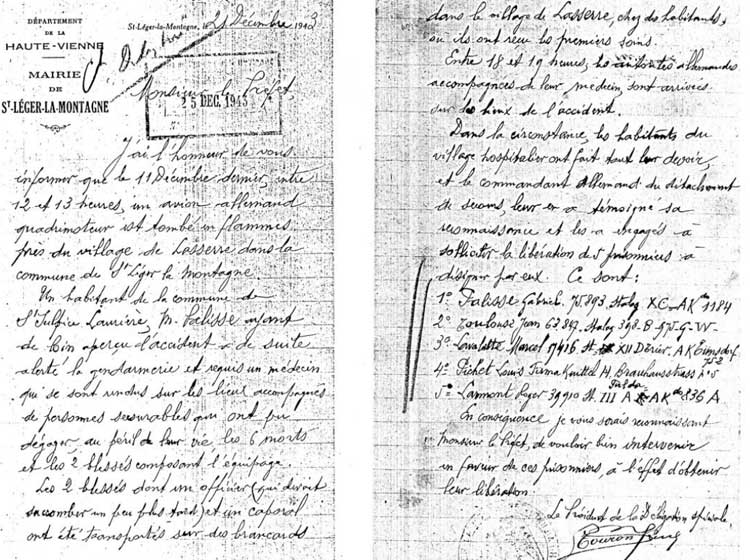 DÉPARTEMENT
DE LA
HAUTE-VIENNE
MAIRIE
DE
ST-LÉGER-LA-MONTAGNE
St-Léger-la-Montagne, le 21 Décembre 1943
Monsieur le Préfet,
25 DEC. 1943
J'ai l'honneur de vous
informer que le 11 Décembre dernier, entre
12 et 13 heures, un avion allemand
quadrimoteur est tombé en flammes
près du village de Lasserre dans la
commune de St Léger la Montagne.
Un habitant de la commune de
St Sulpice Laurière, M. Palisse ayant
de loin aperçu l'accident a de suite
alerté la gendarmerie et requis un médecin
qui se sont rendus sur les lieux accompagnés
de personnes secourables qui ont pu
dégager, au péril de leur vie les 6 morts
et les 2 blessés composant l'équipage.
Les 2 blessés dont un officier (qui devait
succomber un peu plus tard) et un caporal
ont été transportés sur des brancards
dans le village de Lasserre, chez des habitants,
où ils ont reçu les premiers soins.
Entre 18 et 19 heures, les autorités allemandes
accompagnées de leur médecin, sont arrivées
sur les lieux de l'accident.
Dans la circonstance, les habitants du
village hospitalier ont fait tout leur devoir,
et le commandant Allemand du détachement
de secours, leur en a témoigné sa
reconnaissance et les a engagés à
solliciter la libération de 5 prisonniers à
désigner par eux. Ce sont :
1° Palisse Gabriel. 75.893. Stalag X C - AK 1184
2° Toulouse Jean 63.897. Stalag 398-B 975-G-W-
3° Lavalette Marcel 17416 St XII Dérier. AK
4° Pichet Louis Firma Knittel H. n° 5
5° Lamont Roger 39910 St. III A AK 836 A
Fulda
En conséquence je vous serais reconnaissant
Monsieur le Préfet, de vouloir bien intervenir
en faveur de ces prisonniers, à l'effet d'obtenir
leur libération.
Le Président de la Délégation spéciale,